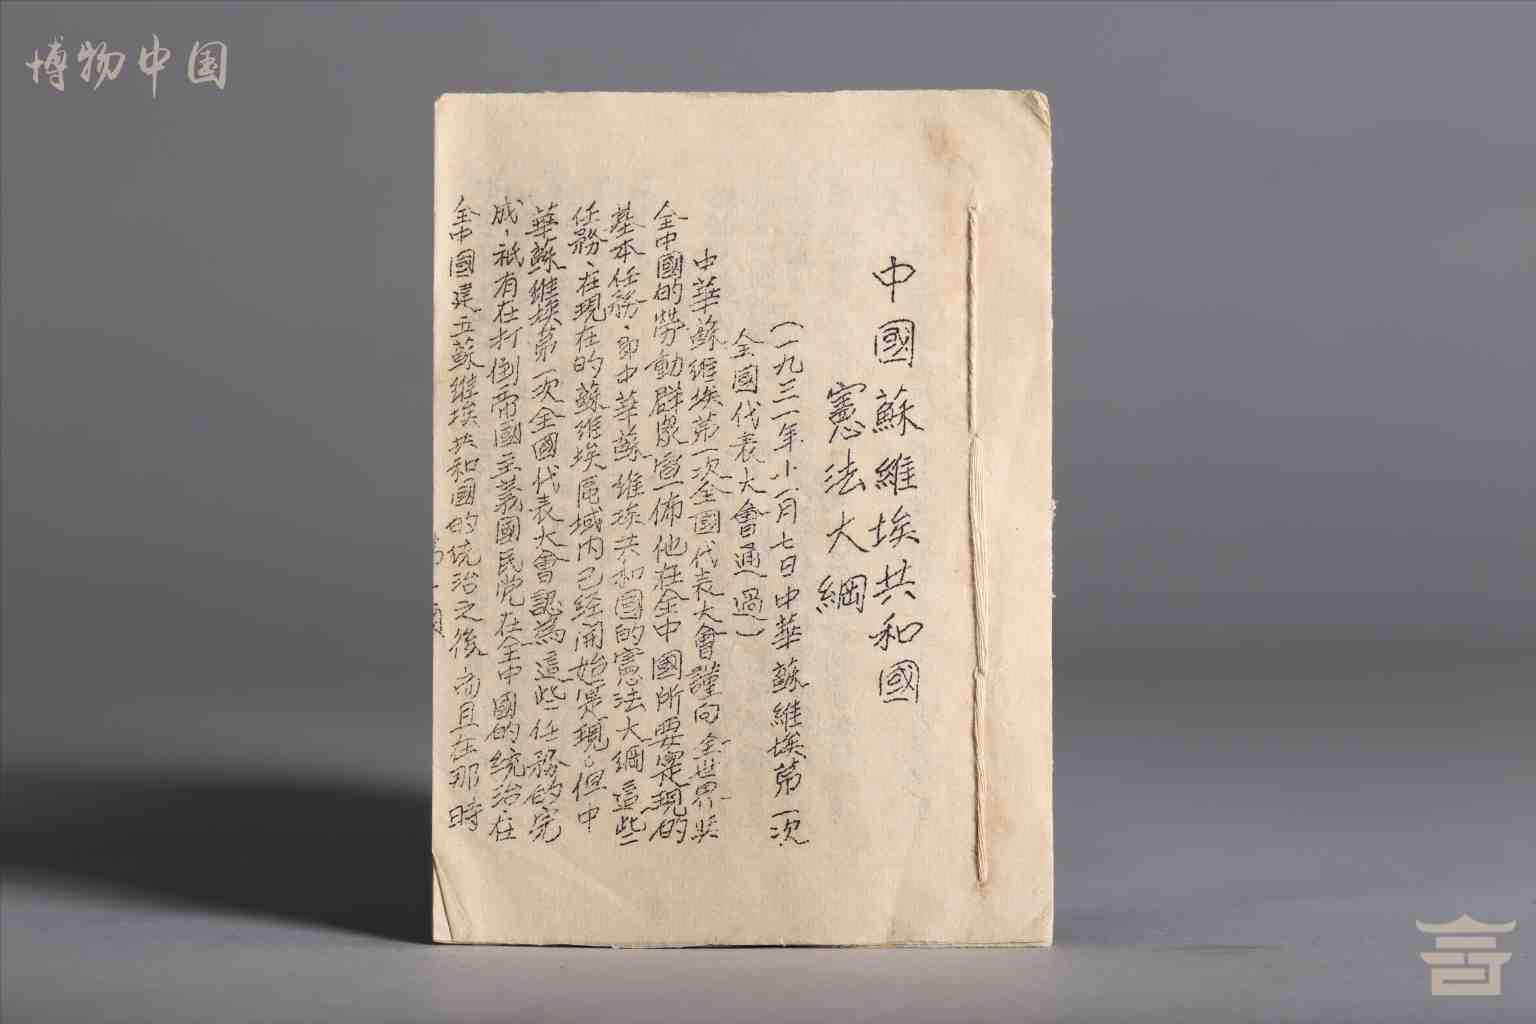 博物中国
中國蘇維埃共和國
憲法大綱
(一九三一年十一月七日中華蘇維埃第一次
全國代表大會通過)
中華蘇維埃第一次全國代表大會謹向全世界與
全中國的勞動群眾宣佈他在全中國所要實現的
基本任務、即中華蘇維埃共和國的憲法大綱這些
任務、在現在的蘇維埃區域内已经開始實現。但中
華蘇維埃第一次全國代表大會認為這些任務的完
成、祇有在打倒帝國主義國民党在全中國的統治在
全中國建立蘇維埃共和國的統治之後而且在那時
第一頁